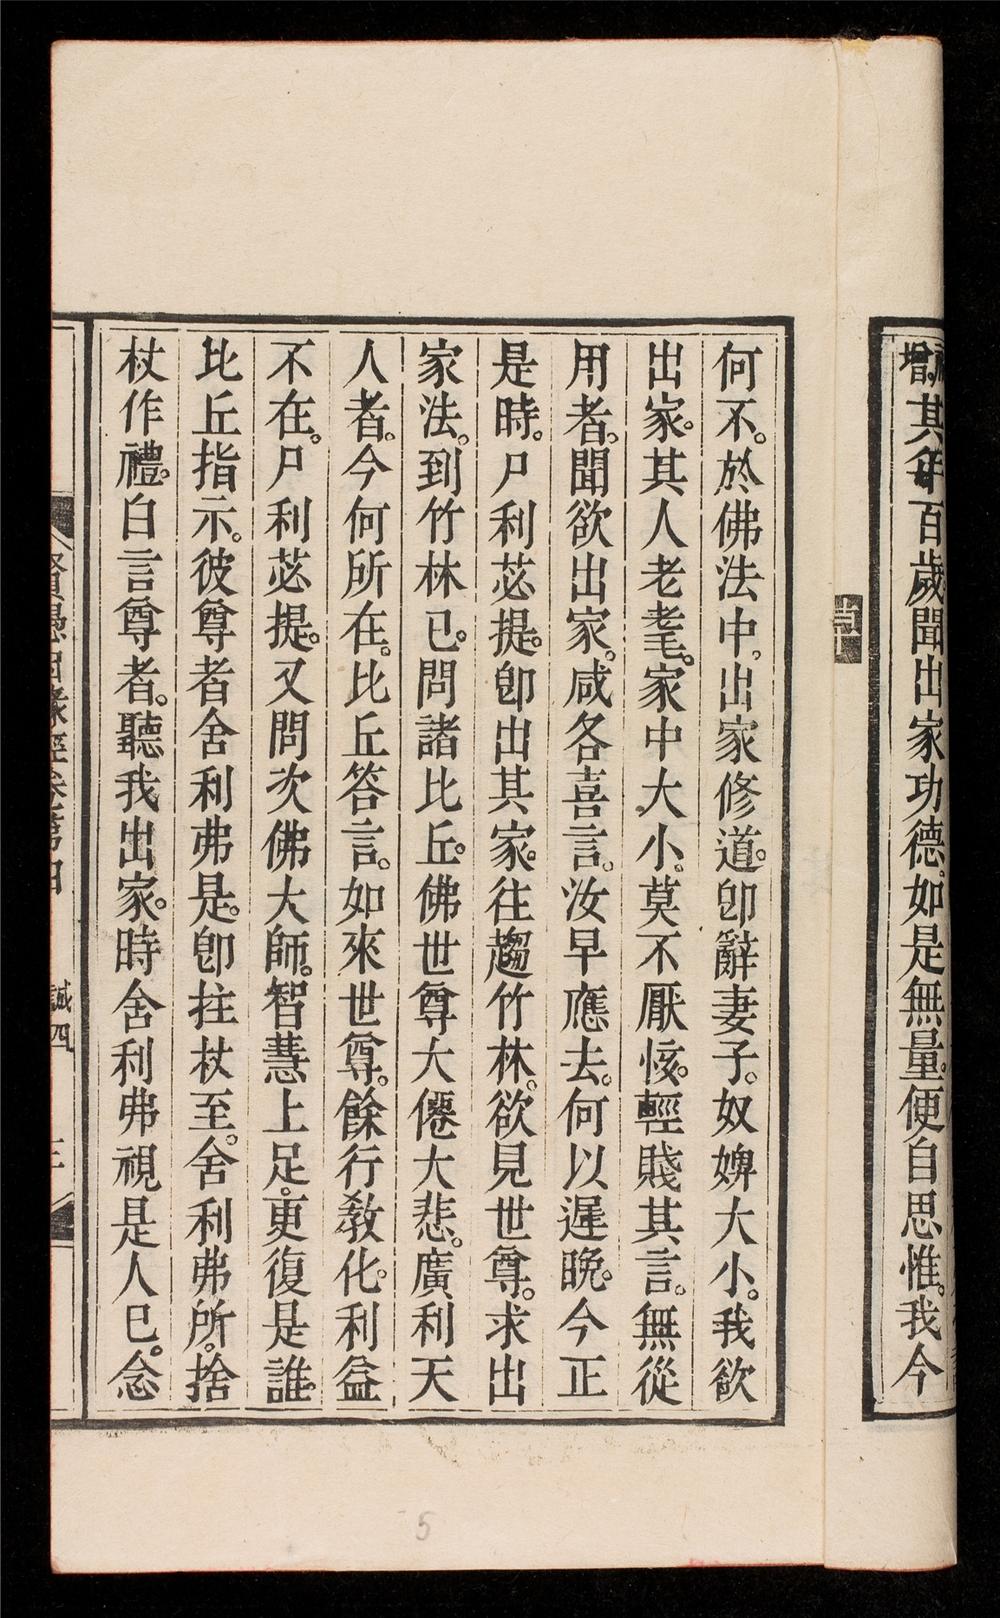 增其年百歲聞出家功德。如是無量。便自思惟。我今
何不。於佛法中。出家修道。卽辭妻子。奴婢大小。我欲
出家。其人老耄。家中大小。莫不厭㤥。輕賤其言。無從
用者。聞欲出家。咸各喜言。汝早應去。何以遲晚。今正
是時。尸利苾提。卽出其家。往趨竹林。欲見世尊。求出
家法。到竹林已。問諸比丘。佛世尊大僊大悲。廣利天
人者。今何所在。比丘答言。如來世尊。餘行敎化。利益
不在。尸利苾提。又問次佛大師。智慧上足。更復是誰。
比丘指示。彼尊者舍利弗是。卽拄杖至。舍利弗所。捨
杖作禮。白言尊者。聽我出家。時舍利弗視是人已。念
賢愚因緣經卷第四 誠四 三
5